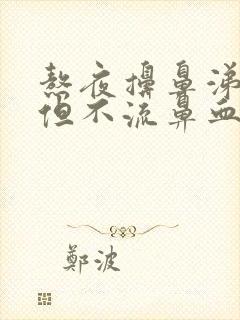 熬夜擤鼻涕
但不流鼻血
鄭波